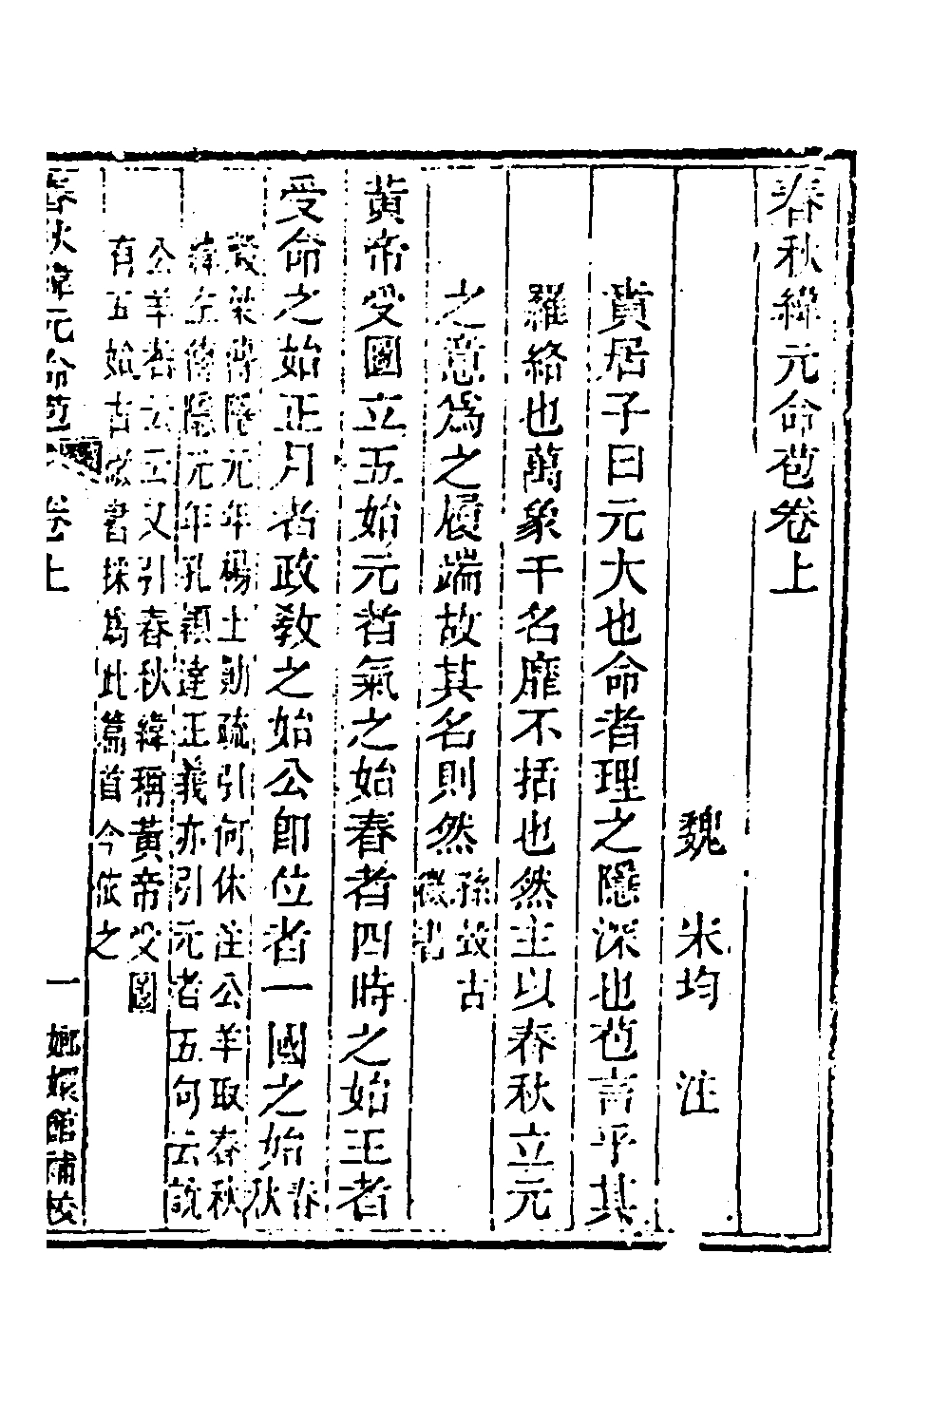 春秋緯元命苞卷上
魏　宋均　注
賁居子曰元大也命者理之隱深也苞言乎其
羅絡也萬象千名靡不括也然主以春秋立元
之意爲之履端故其名則然孫瑴古
微書
黃帝受圖立五始元者氣之始春者四時之始王者
受命之始正月者政敎之始公卽位者一國之始春
秋
穀梁傳隱元年楊士勛疏引何休注公羊取春秋
緯左傳隱元年孔穎達正義亦引元者五句云說
公羊者云云又引春秋緯稱黃帝受圖
有五始古微書採爲此篇首今依之
春秋緯元命苞　卷上　一　嫏嬛館補校